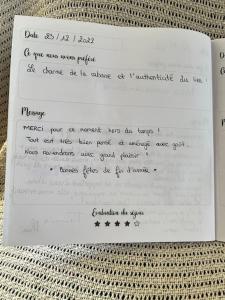 Date 23 / 12 / 2022
Ce que nous avons préféré
Le charme de la cabane et l'authenticité du lieu.
Message
MERCI pour ce moment hors du temps !
Tout est très bien pensé et aménagé avec goût.
Nous reviendrons avec grand plaisir !
• Bonnes fêtes de fin d'année •
Evaluation du séjour
★ ★ ★ ★ ☆